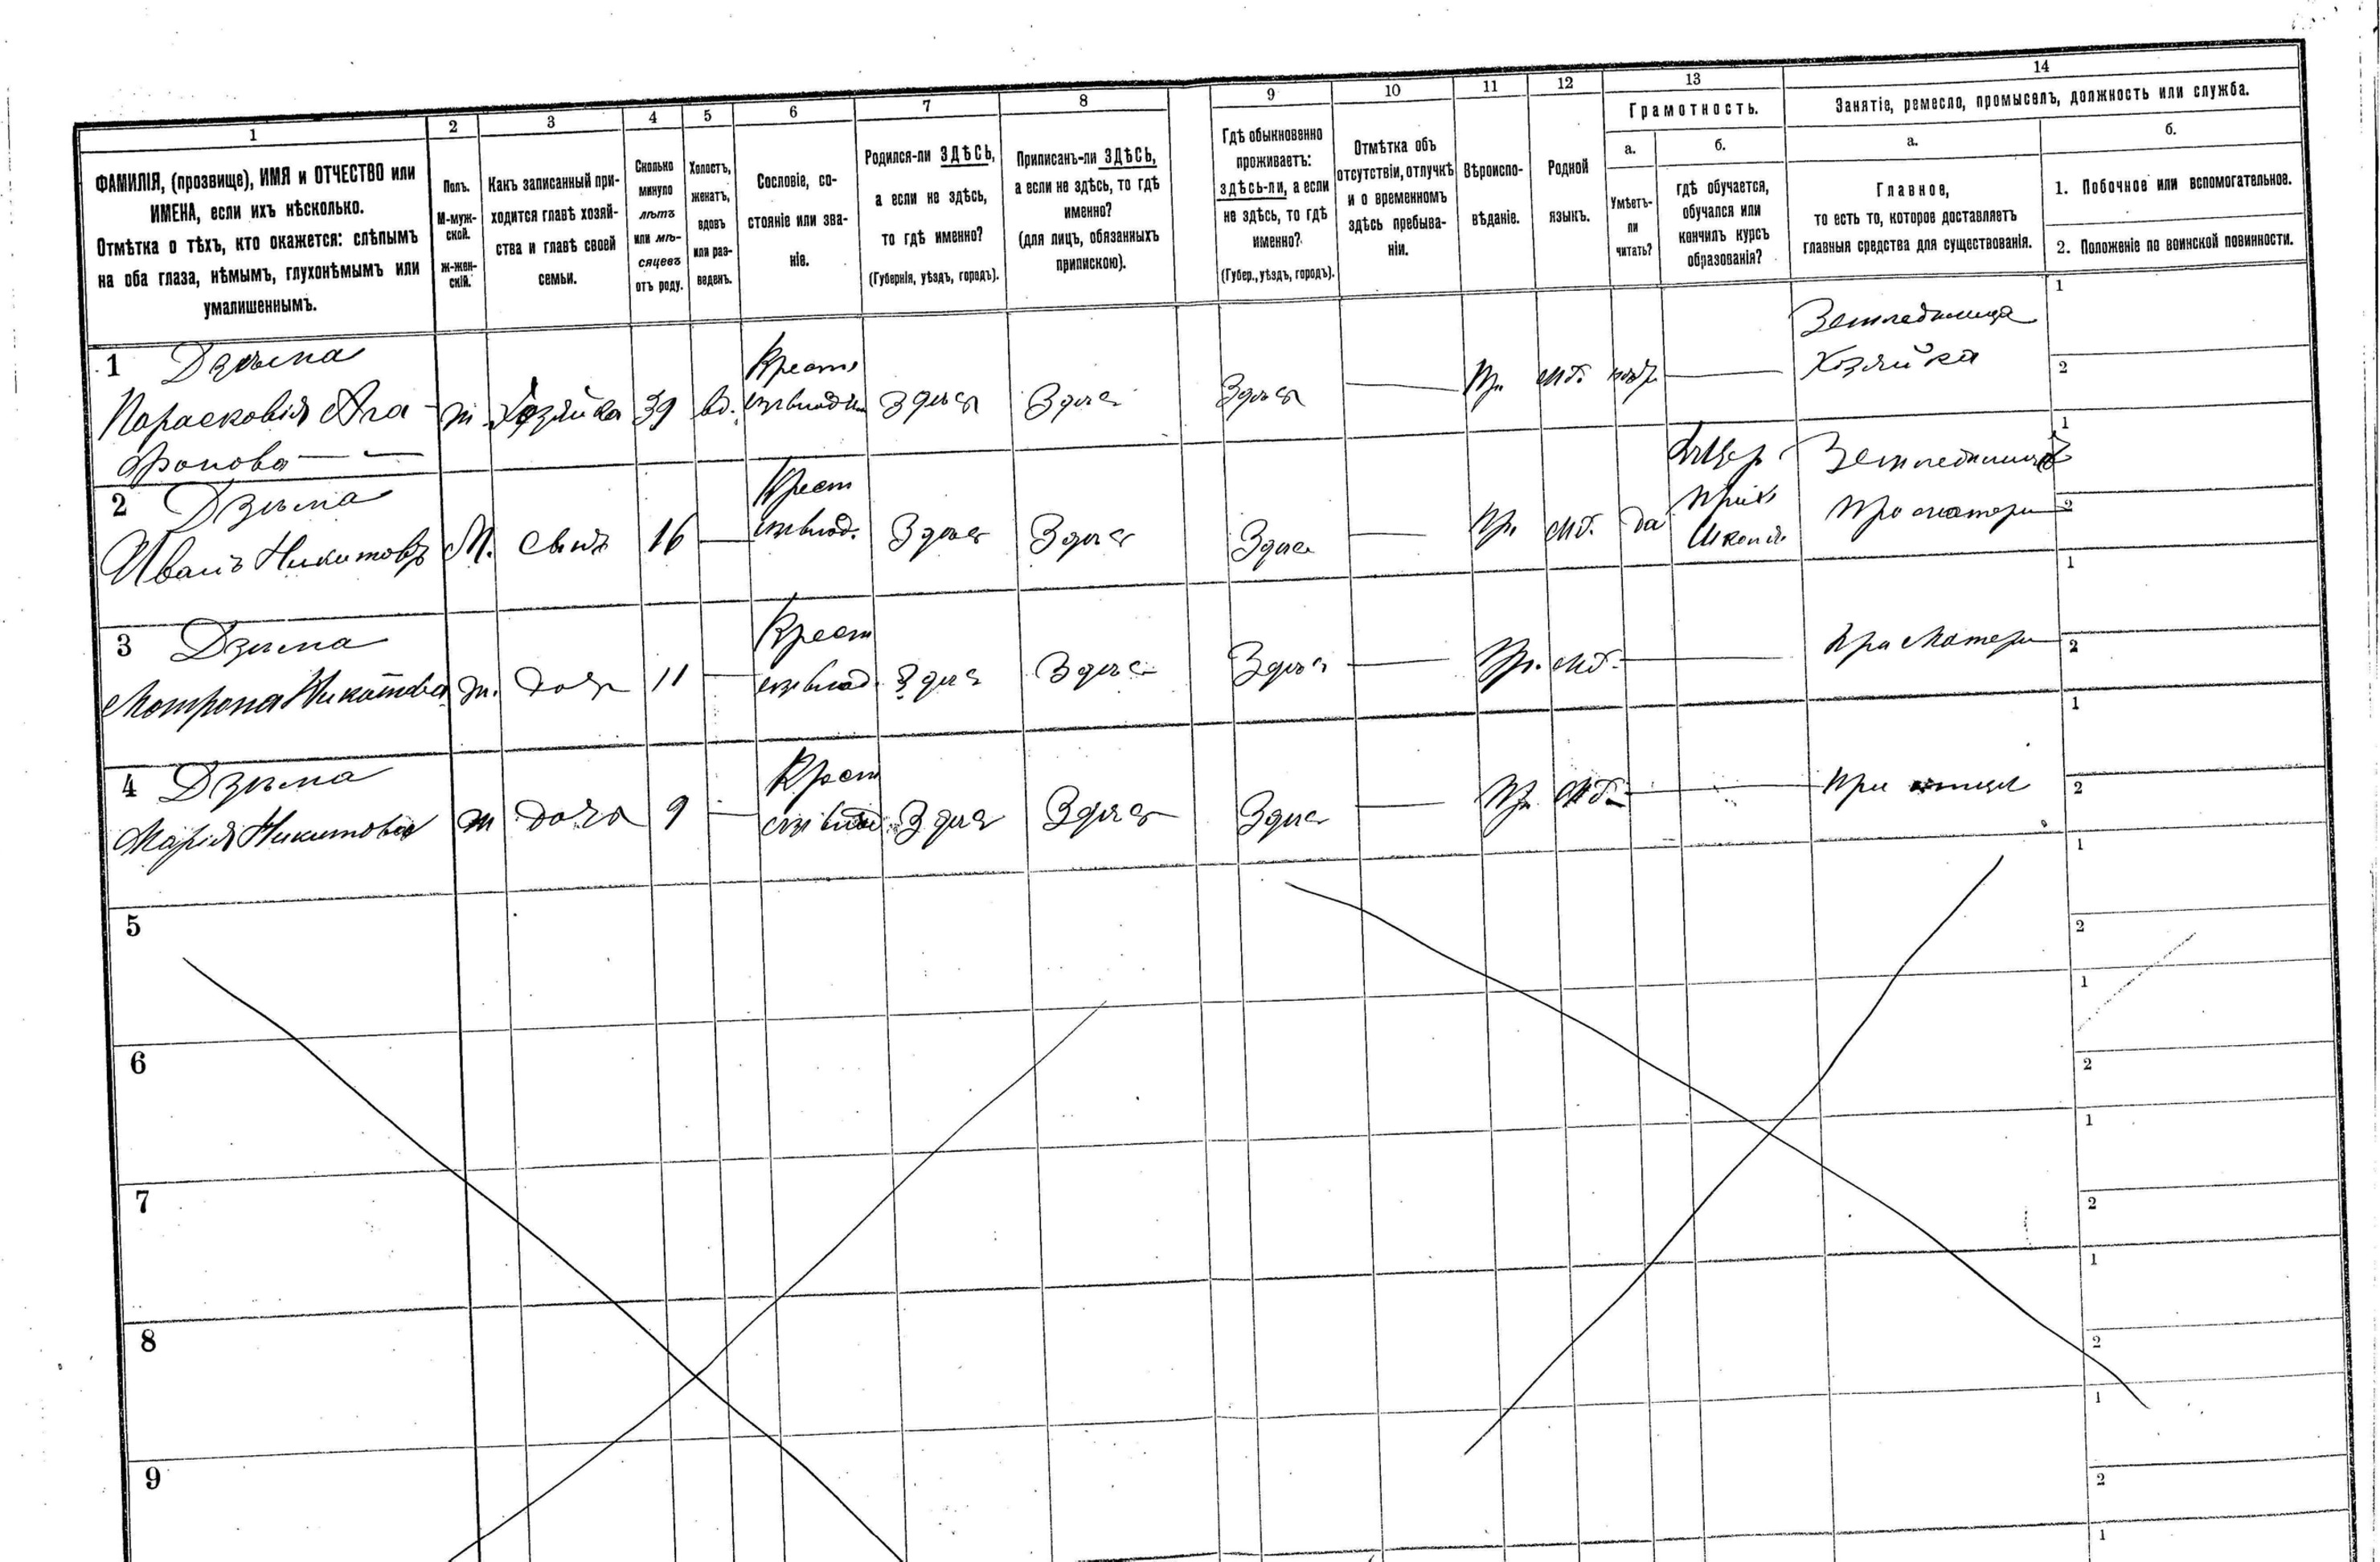 1
2
3
4
5
6
7
8
9
10
11
12
13
14
ФАМИЛІЯ, (прозвище), ИМЯ и ОТЧЕСТВО или
ИМЕНА, если ихъ нѣсколько.
Отмѣтка о тѣхъ, кто окажется: слѣпымъ
на оба глаза, нѣмымъ, глухонѣмымъ или
умалишеннымъ.
Полъ.
М-муж-
ской.
Ж-жен-
скій.
Какъ записанный при-
ходится главѣ хозяй-
ства и главѣ своей
семьи.
Сколько
минуло
лѣтъ
или мѣ-
сяцевъ
отъ роду.
Холостъ,
женатъ,
вдовъ
или раз-
веденъ.
Сословіе, со-
стояніе или зва-
ніе.
Родился-ли ЗДѢСЬ,
а если не здѣсь,
то гдѣ именно?
(Губернія, уѣздъ, городъ).
Приписанъ-ли ЗДѢСЬ,
а если не здѣсь, то гдѣ
именно?
(для лицъ, обязанныхъ
припискою).
Гдѣ обыкновенно
проживаетъ:
здѣсь-ли, а если
не здѣсь, то гдѣ
именно?
(Губер., уѣздъ, городъ).
Отмѣтка объ
отсутствіи, отлучкѣ
и о временномъ
здѣсь пребыва-
ніи.
Вѣроиспо-
вѣданіе.
Родной
языкъ.
Грамотность.
а.
Умѣетъ-
ли
читать?
б.
гдѣ обучается,
обучался или
кончилъ курсъ
образованія?
Занятіе, ремесло, промыселъ, должность или служба.
а.
Главное,
то есть то, которое доставляетъ
главныя средства для существованія.
б.
1. Побочное или вспомогательное.
2. Положеніе по воинской повинности.
1 Дзюма
Парасковія Ага-
фонова
ж. Хозяйка 39 вд.
Крест.
Здѣсь Здѣсь Здѣсь
Пр. мл. нѣтъ
Земледѣлица
Хозяйка
1
2
2 Дзюма
Иванъ Никитовъ
М. сынъ 16
Крест
Здѣсь Здѣсь Здѣсь
Пр. мл. да
Прих.
Школѣ
при матери
1
2
3 Дзюма
Мотрона Никитова
ж. дочь 11
Крест
Здѣсь Здѣсь Здѣсь
Пр. мл.
При Матери
1
2
4 Дзюма
Марія Никитова
ж дочь 9
Крест
Здѣсь Здѣсь Здѣсь
Пр. мл.
При
1
2
5
1
2
6
1
2
7
1
2
8
1
2
9
1
2
1